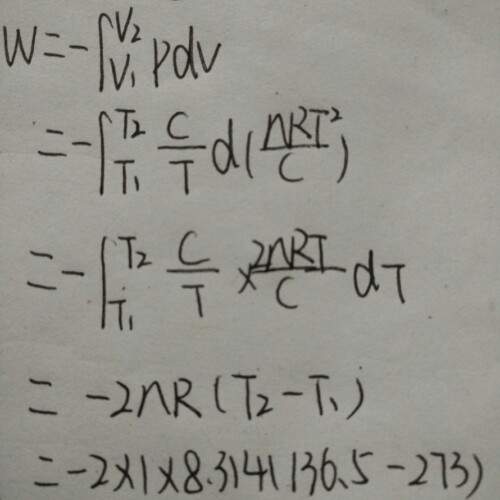 W=-∫_{V₁}^{V₂} pdV
=-∫_{T₁}^{T₂} C/T d(nRT²/C)
=-∫_{T₁}^{T₂} C/T × 2nRT/C dT
= -2nR(T₂-T₁)
=-2×1×8.314(136.5-273)